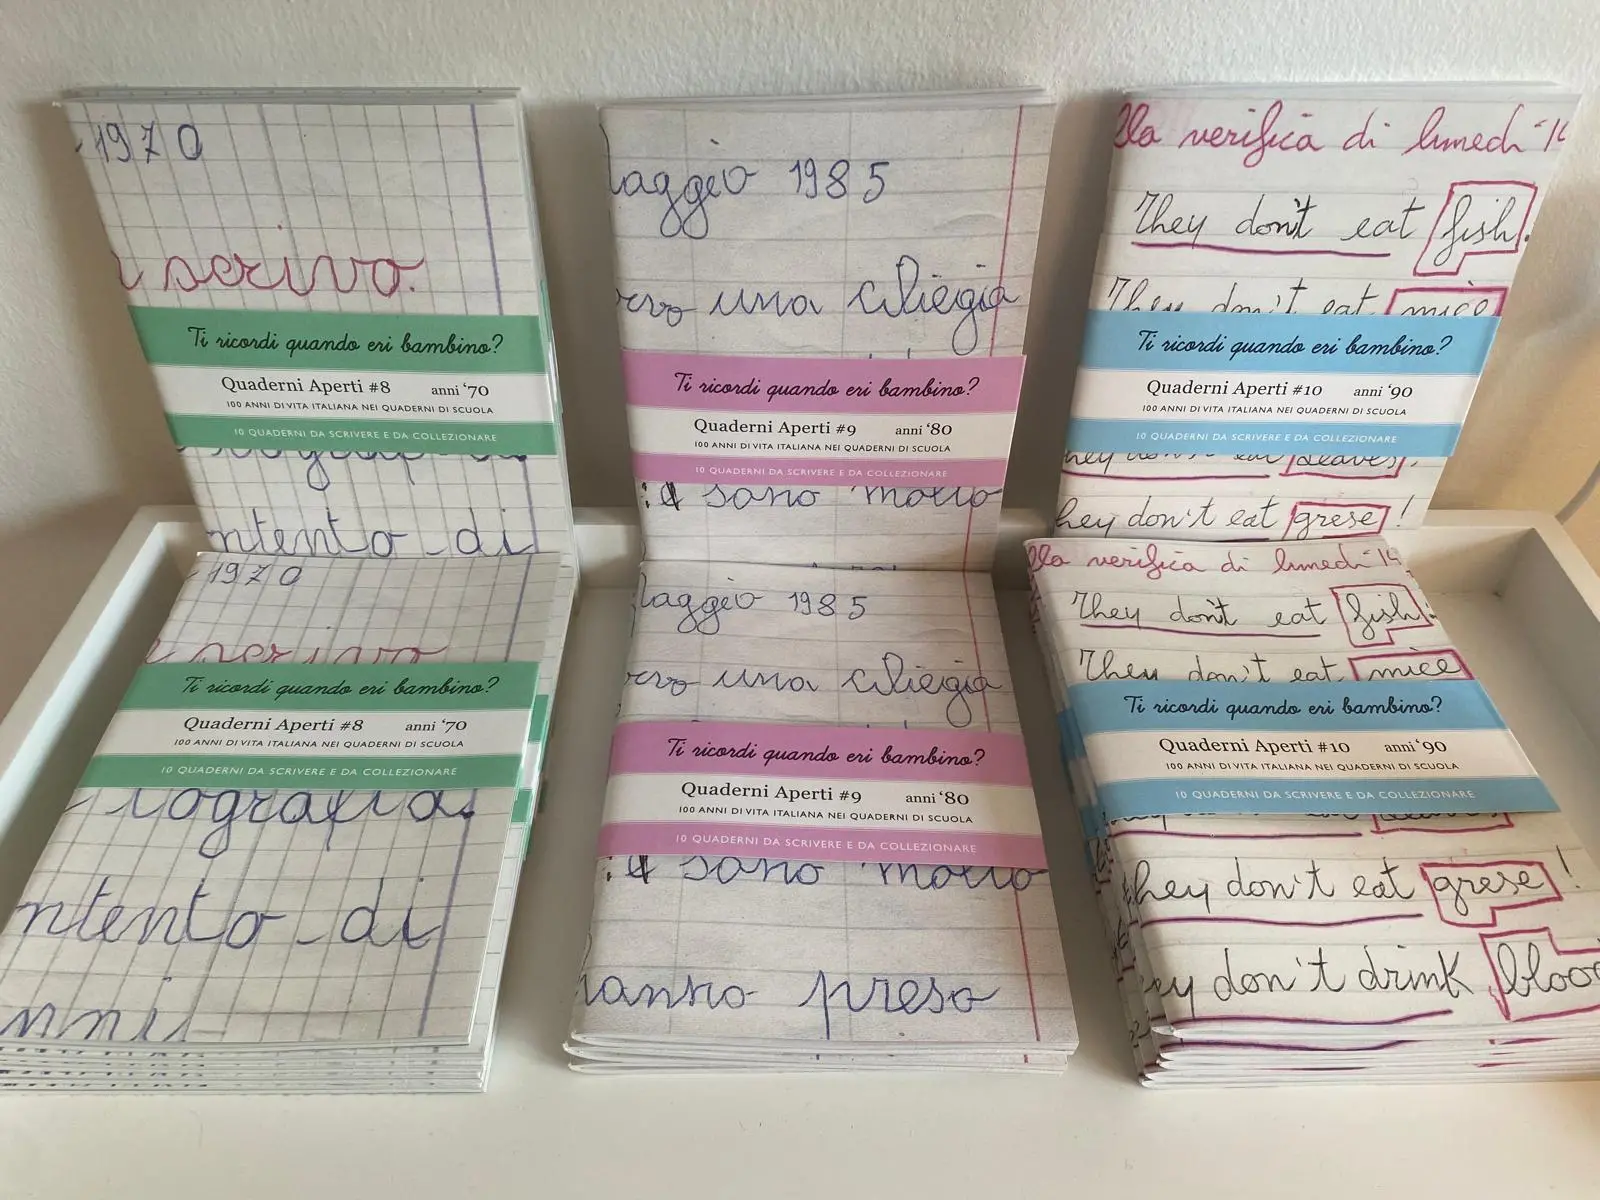 -1970
scrivo.
Ti ricordi quando eri bambino?
Quaderni Aperti #8 anni '70
100 ANNI DI VITA ITALIANA NEI QUADERNI DI SCUOLA
10 QUADERNI DA SCRIVERE E DA COLLEZIONARE
ntento di
aggio 1985
rvo una ciliegia
Ti ricordi quando eri bambino?
Quaderni Aperti #9 anni '80
100 ANNI DI VITA ITALIANA NEI QUADERNI DI SCUOLA
10 QUADERNI DA SCRIVERE E DA COLLEZIONARE
sono molto
lla verifica di lunedì 14
They don't eat fish.
They don't eat mice
Ti ricordi quando eri bambino?
Quaderni Aperti #10 anni '90
100 ANNI DI VITA ITALIANA NEI QUADERNI DI SCUOLA
10 QUADERNI DA SCRIVERE E DA COLLEZIONARE
hey don't eat leaves.
hey don't eat grese!
-1970
scrivo
Ti ricordi quando eri bambino?
Quaderni Aperti #8 anni '70
100 ANNI DI VITA ITALIANA NEI QUADERNI DI SCUOLA
10 QUADERNI DA SCRIVERE E DA COLLEZIONARE
iografia.
ntento di
nni
aggio 1985
rvo una ciliegia
Ti ricordi quando eri bambino?
Quaderni Aperti #9 anni '80
100 ANNI DI VITA ITALIANA NEI QUADERNI DI SCUOLA
10 QUADERNI DA SCRIVERE E DA COLLEZIONARE
sono molto
hanno preso
lla verifica di lunedì 14
They don't eat fish.
They don't eat mice
Ti ricordi quando eri bambino?
Quaderni Aperti #10 anni '90
100 ANNI DI VITA ITALIANA NEI QUADERNI DI SCUOLA
10 QUADERNI DA SCRIVERE E DA COLLEZIONARE
they don't eat grese!
ey don't drink bloo